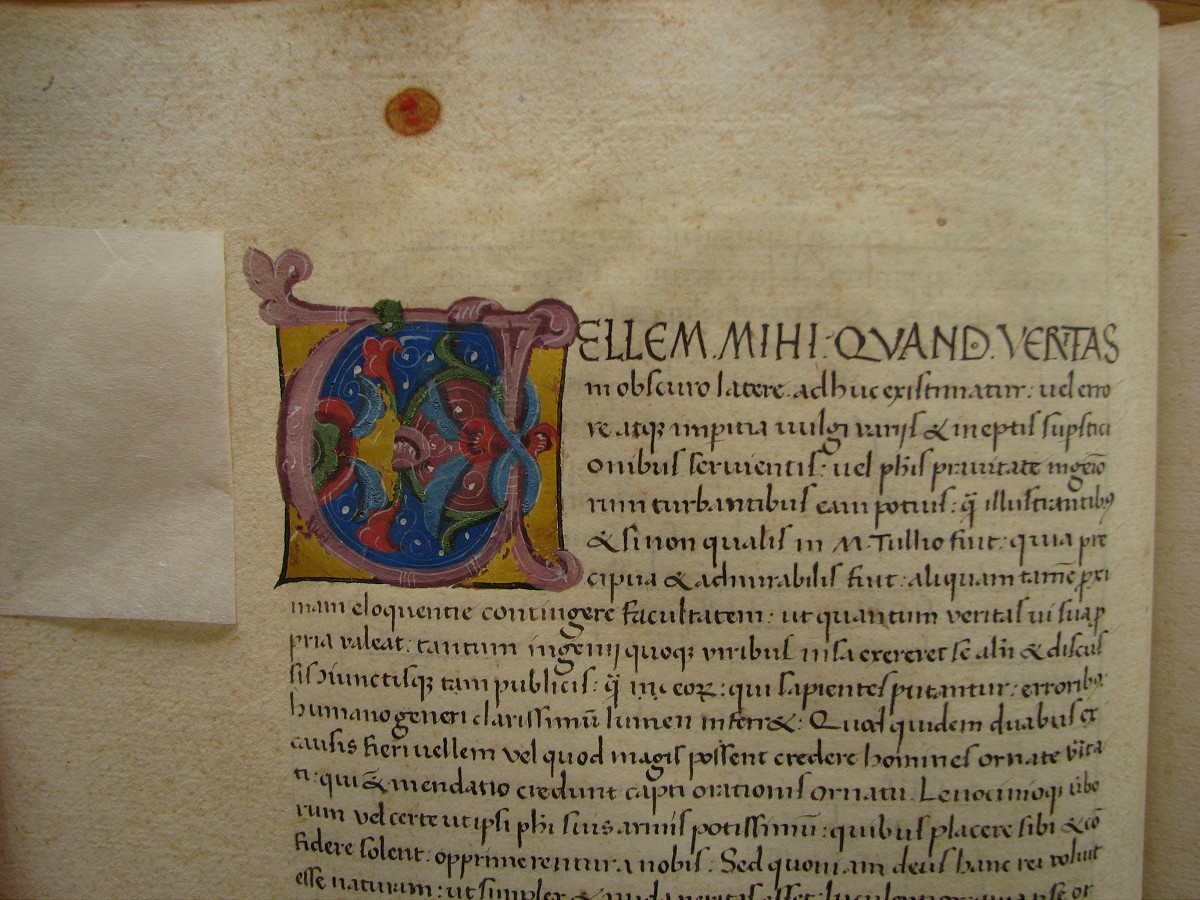 VELLEM. MIHI. QVAND. VERITAS
in obscuro latere. adhuc existimatur: uel erro
re atq; imperitia uulgi varijs & ineptis supstici
onibus seruientis: uel phis prauitate ingeio
rum turbantibus eam potius: q̃ illustrantibꝰ
& si non qualis in M. Tullio fuit: quia pre
cipua & admirabilis fuit: aliquam tamē ꝓxi
mam eloquentie contingere facultatem: ut quantum veritas ui sua ꝓ
pria valeat: tantum ingenij quoq; viribus nisa exereret se aliñ & discus
sis hiunctisq; tam publicis: q̃ in eoꝝ: qui sapientes putantur: erroribꝰ
humano generi clarissimū lumen inferr&: Quod quidem duabus ex
causis fieri vellem vel quod magis possent credere homines ornate
ti: qui & mendatio credunt capti orationis ornatu. Lenocinioq;
rum vel certe ut ipsi phi suis armis potissimū: quibus placere sibi & cō
fidere solent. opprimerentur a nobis: Sed quoniam deus hanc rei voluit
esse naturam: ut simplex & nuda veritas esset: luculentior quia